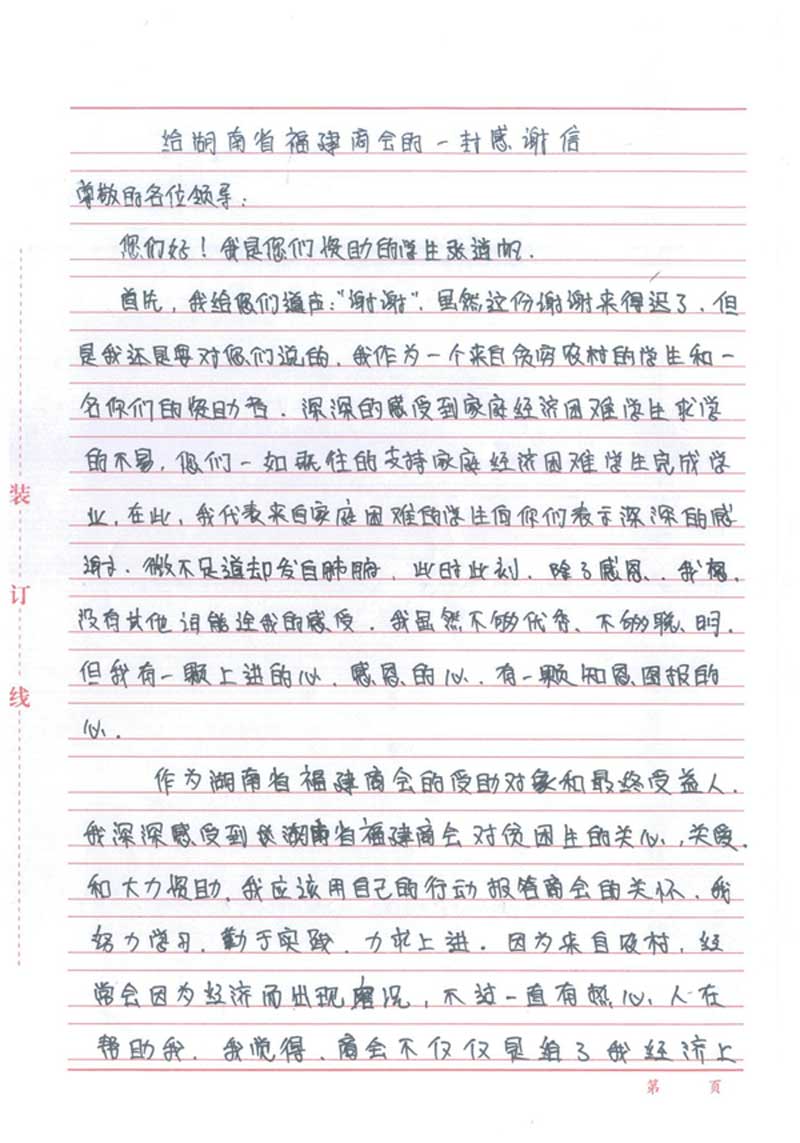 给湖南省福建商会的一封感谢信
尊敬的各位领导:
您们好!我是您们资助的学生张道帆.
首先,我给您们道声:"谢谢",虽然这份谢谢来得迟了,但
是我还是要对您们说的,我作为一个来自贫穷农村的学生和一
名你们的资助者.深深的感受到家庭经济困难学生求学
的不易,您们一如既往的支持家庭经济困难学生完成学
业,在此,我代表来自家庭困难的学生向你们表示深深的感
谢.微不足道却发自肺腑,此时此刻,除了感恩、我想,
没有其他词能诠我的感受.我虽然不够优秀、不够聪明,
但我有一颗上进的心、感恩的心、有一颗知恩图报的
心.
作为湖南省福建商会的受助对象和最终受益人.
我深深感受到湖南省福建商会对贫困生的关心,关爱.
和大力资助,我应该用自己的行动报答商会的关怀.我
努力学习.勤于实践.力求上进.因为来自农村,经
常会因为经济而出现况,不过一直有热心人在
帮助我.我觉得,商会不仅仅是给了我经济上
装
订
线
第 页